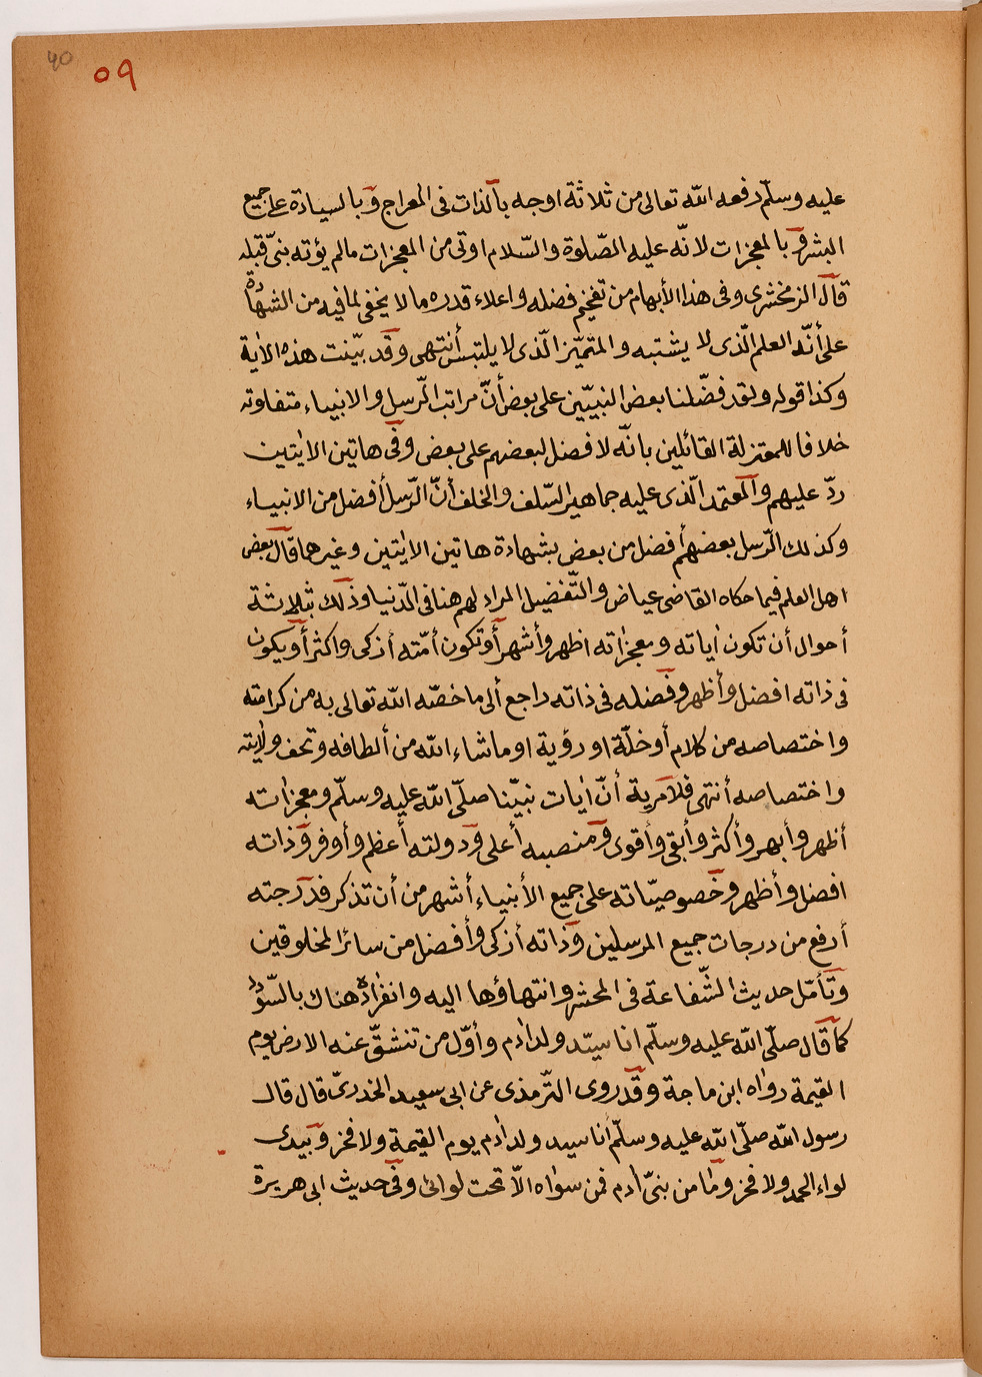 ٥٩
عليه وسلّم رفعه الله تعالى من ثلاثة اوجه بالذات فى المعراج وبالسيادة على جميع
البشر وبالمعجزات لانّه عليه الصّلوة والسّلام اوتى من المعجزات مالم يؤته نبىّ قبله
قال الزمخشرى وفى هذا الأبهام من تفخيم فضله واعلاء قدره ما لا يخفى لما فيه من الشهادة
على أنّه العلم الّذى لا يشتبه والمتميّز الّذى لا يلتبس أنتهى وقد بيّنت هذه الاٰية
وكذا قوله ولقد فضّلنا بعض النبيّين على بعض أنّ مراتب الرّسل والانبياء متفاوته
خلافا للمعتزلة القائلين بانّه لا فضل لبعضهم على بعض وفى هاتين الاٰيتين
ردّ عليهم والمعتمد الّذى عليه جماهير السّلف والخلف أنّ الرّسل أفضل من الانبياء
وكذلك الرّسل بعضهم أفضل من بعض بشهادة هاتين الاٰيتين وغيرهما قال بعض
اهل العلم فيما حكاه القاضى عياض والتّفضيل المراد لهم هنا فى الدّنيا وذلك بثلاثة
أحوال أن تكون اٰياته ومعجزاته اظهر وأشهر أو تكون أمّته أزكى واكثر أو يكون
فى ذاته افضل وأظهر وفضله فى ذاته راجع ألى ما خصّه الله تعالى به من كرامته
واختصاصه من كلام أو خلّة او رؤية او ما شاء الله من ألطافه وتحف ولايته
واختصاصه أنتهى فلا مرية أنّ اٰيات نبيّنا صلّى الله عليه وسلّم ومعجزاته
أظهر وأبهر وأكثر وأبقى وأقوى ومنصبه أعلى ودولته أعظم وأوفر وذاته
افضل وأظهر وخصوصيّاته على جميع الأنبياء أشهر من أن تذكر فدرجته
أرفع من درجات جميع المرسلين وذاته أزكى وأفضل من سائر المخلوقين
وتأمّل حديث الشّفاعة فى المحشر وانتهاؤها اليه وانفراده هناك بالسّؤدد
كما قال صلّى الله عليه وسلّم انا سيّد ولد اٰدم وأوّل من تنشقّ عنه الارض يوم
القيمة رواه ابن ماجة وقد روى التّرمذى عن ابى سعيد الخدرىّ قال قال
رسول الله صلّى الله عليه وسلّم أنا سيد ولد اٰدم يوم القيمة ولا فخر وبيدى
لواء الحمد ولا فخر وما من بنىّ اٰدم فمن سواه الّا تحت لوائى وفى حديث ابى هريرة